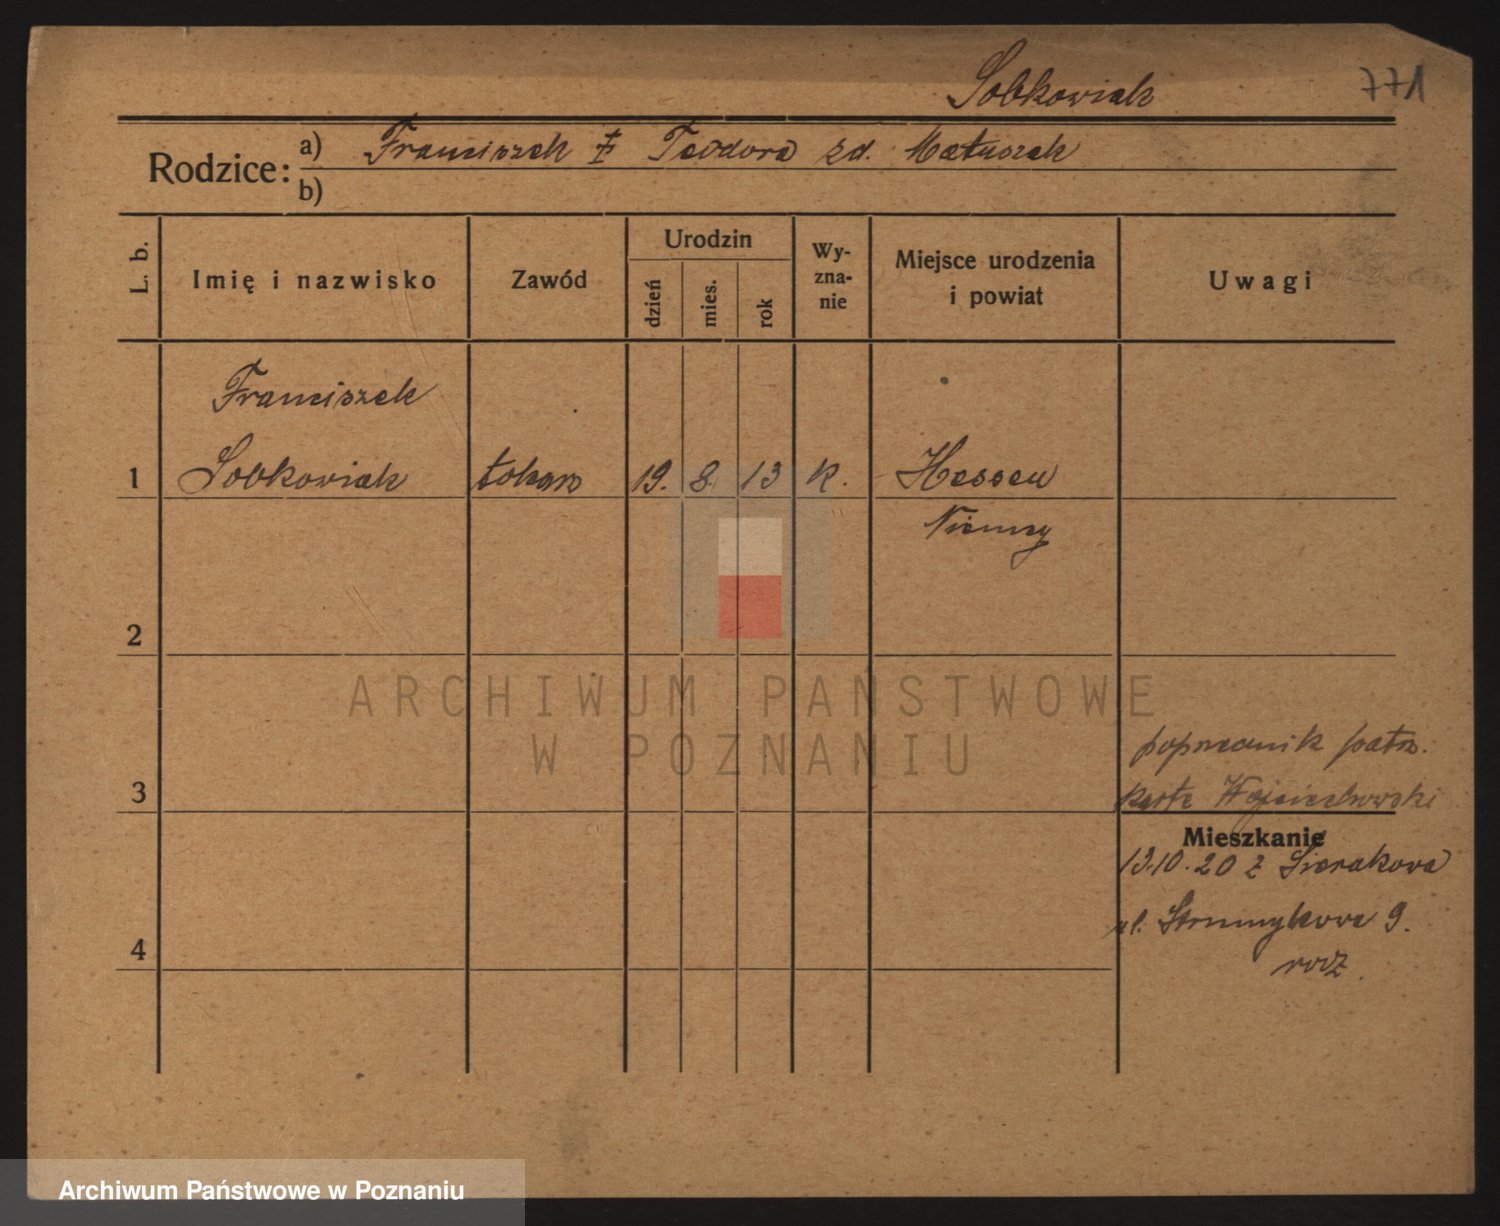 Sobkowiak
771
Rodzice: a) Franciszek ‡ Teodora zd. Matuszak
b)
L. b.
Imię i nazwisko
Zawód
Urodzin
dzień
mies.
rok
Wy-
zna-
nie
Miejsce urodzenia
i powiat
Uwagi
Franciszek
1 Sobkowiak tokarz 19. 8. 13 k. Hessen
Niemcy
2
ARCHIWUM PAŃSTWOWE
W POZNANIU
poprzednik patrz.
3 kartę Wojciechowski
Mieszkanie
13.10.20 z Sierakowa
ul. Strumykowa 9.
4
rodz.
Archiwum Państwowe w Poznaniu